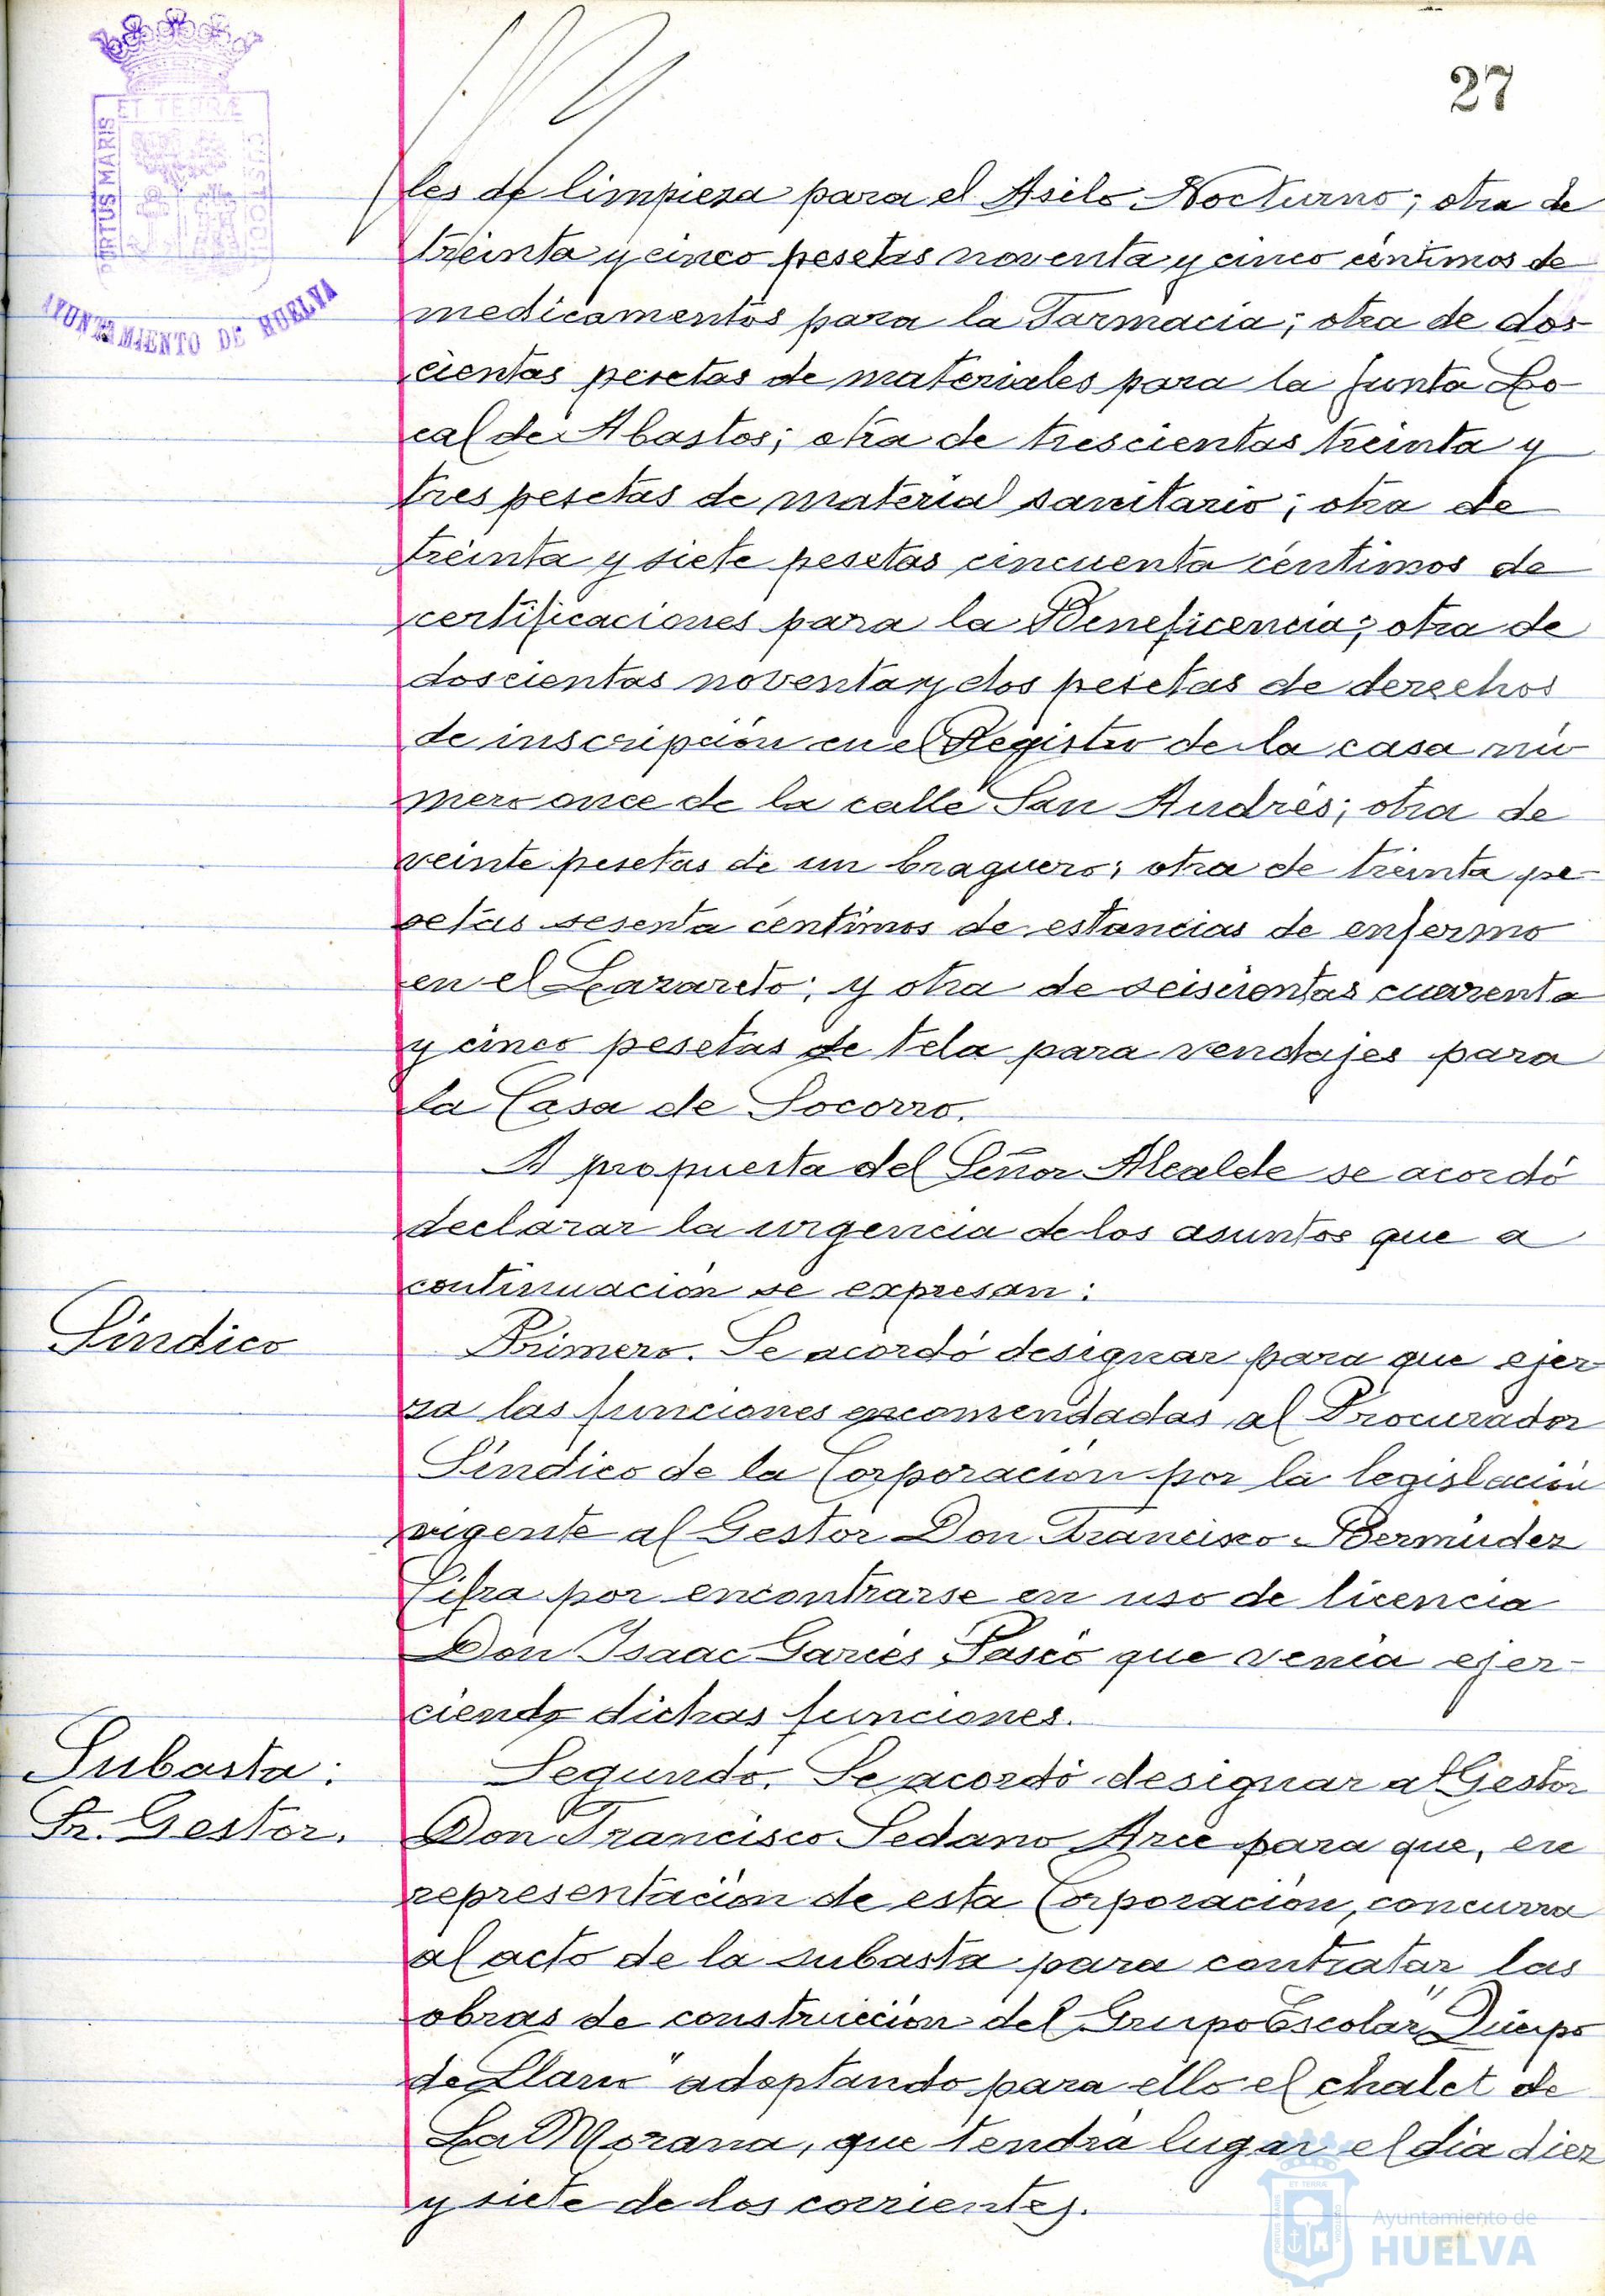 27
ET TERRÆ
PORTUS MARIS
CUSTODIA
AYUNTAMIENTO DE HUELVA
les de limpieza para el Asilo Nocturno; otra de
treinta y cinco pesetas noventa y cinco céntimos de
medicamentos para la Farmacia; otra de dos-
cientas pesetas de materiales para la Junta Lo-
cal de Abastos; otra de trescientas treinta y
tres pesetas de material sanitario; otra de
treinta y siete pesetas cincuenta céntimos de
certificaciones para la Beneficencia; otra de
doscientas noventa y dos pesetas de derechos
de inscripción en el Registro de la casa nú-
mero once de la calle San Andrés; otra de
veinte pesetas de un braguero; otra de treinta pe-
setas sesenta céntimos de estancias de enfermo
en el Lazareto; y otra de seiscientas cuarenta
y cinco pesetas de tela para vendajes para
la Casa de Socorro.
A propuesta del Señor Alcalde se acordó
declarar la urgencia de los asuntos que a
continuación se expresan:
Síndico
Primero. Se acordó designar para que ejer-
za las funciones encomendadas al Procurador
Síndico de la Corporación por la legislación
vigente al Gestor Don Francisco Bermúdez
Cifra por encontrarse en uso de licencia
Don Isaac Garcés Pascó que venía ejer-
ciendo dichas funciones.
Subasta:
Sr. Gestor.
Segundo. Se acordó designar al Gestor
Don Francisco Sedano Arce para que, en
representación de esta Corporación, concurra
al acto de la subasta para contratar las
obras de construcción del Grupo Escolar "Queipo
de Llano" adoptando para ello el chalet de
La Morana, que tendrá lugar el día diez
y siete de los corrientes.
Ayuntamiento de
HUELVA